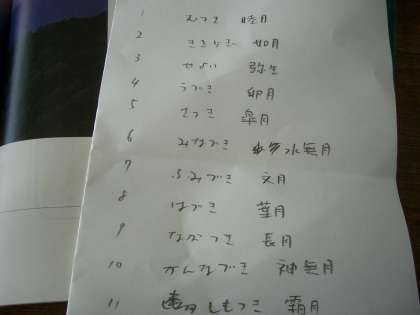 1 むつき 睦月
2 きさらぎ 如月
3 やよい 弥生
4 うづき 卯月
5 さつき 皐月
6 みなづき 水無月
7 ふみづき 文月
8 はづき 葉月
9 ながつき 長月
10 かんなづき 神無月
11 しもつき 霜月